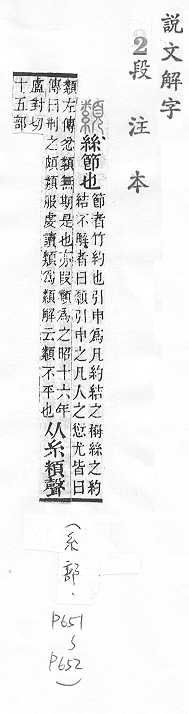 説文解字
2段注本
纇 絲節也 節者竹約也引申爲凡約結之偁絲之約
結不解者曰纇引申之凡人之愆尤皆曰
纇左傳忿纇無期是也亦叚頪爲之昭十六年
傳曰刑之頗纇服虔讀纇爲類解云類不平也 从糸頪聲
盧對切
十五部
(糸部.
P651
~
P652
)